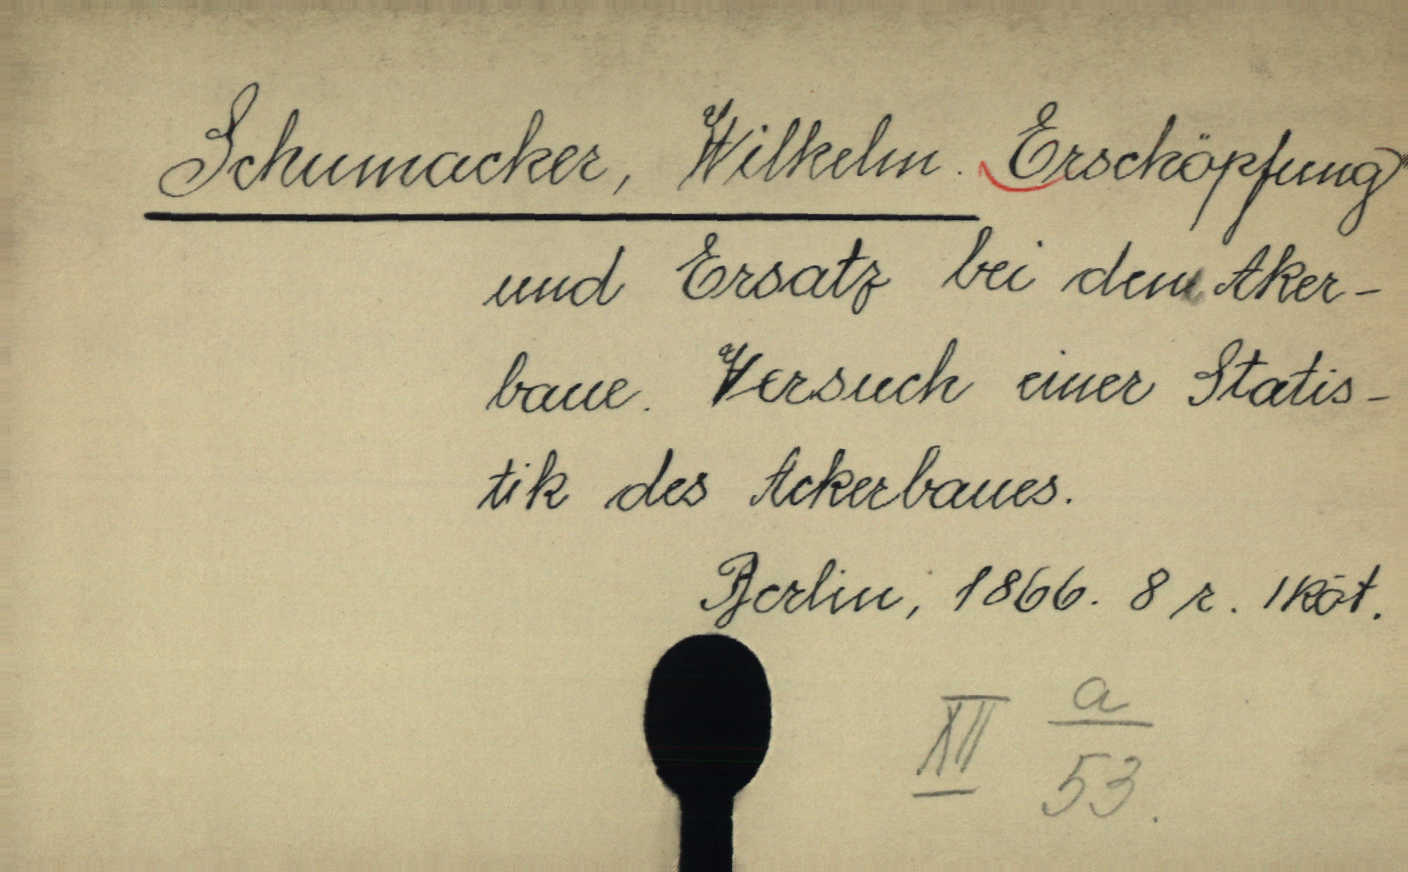 Schumacker, Wilhelm. Erschöpfung
und Ersatz bei dem Aker-
baue. Versuch einer Statis-
tik des Ackerbaues.
Berlin, 1866. 8 r. 1 köt.
XII a
53.